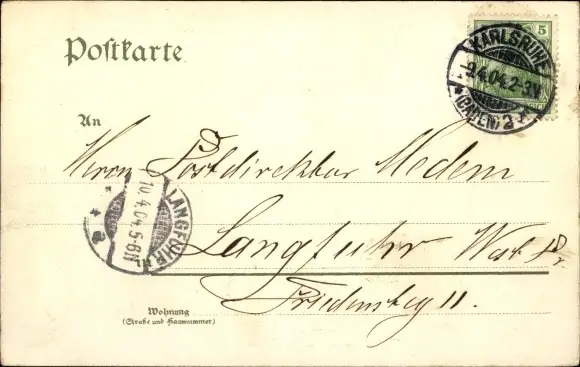 Postkarte
5
KARLSRUHE
9.4.04.2-3N
* (BADEN) 2 *
An
Herrn Postdirektor Modem
LANGFUHR
10.4.04.5-6N
* a
Langfuhr West Pr.
Friedensteg 11.
Wohnung
(Straße und Hausnummer)